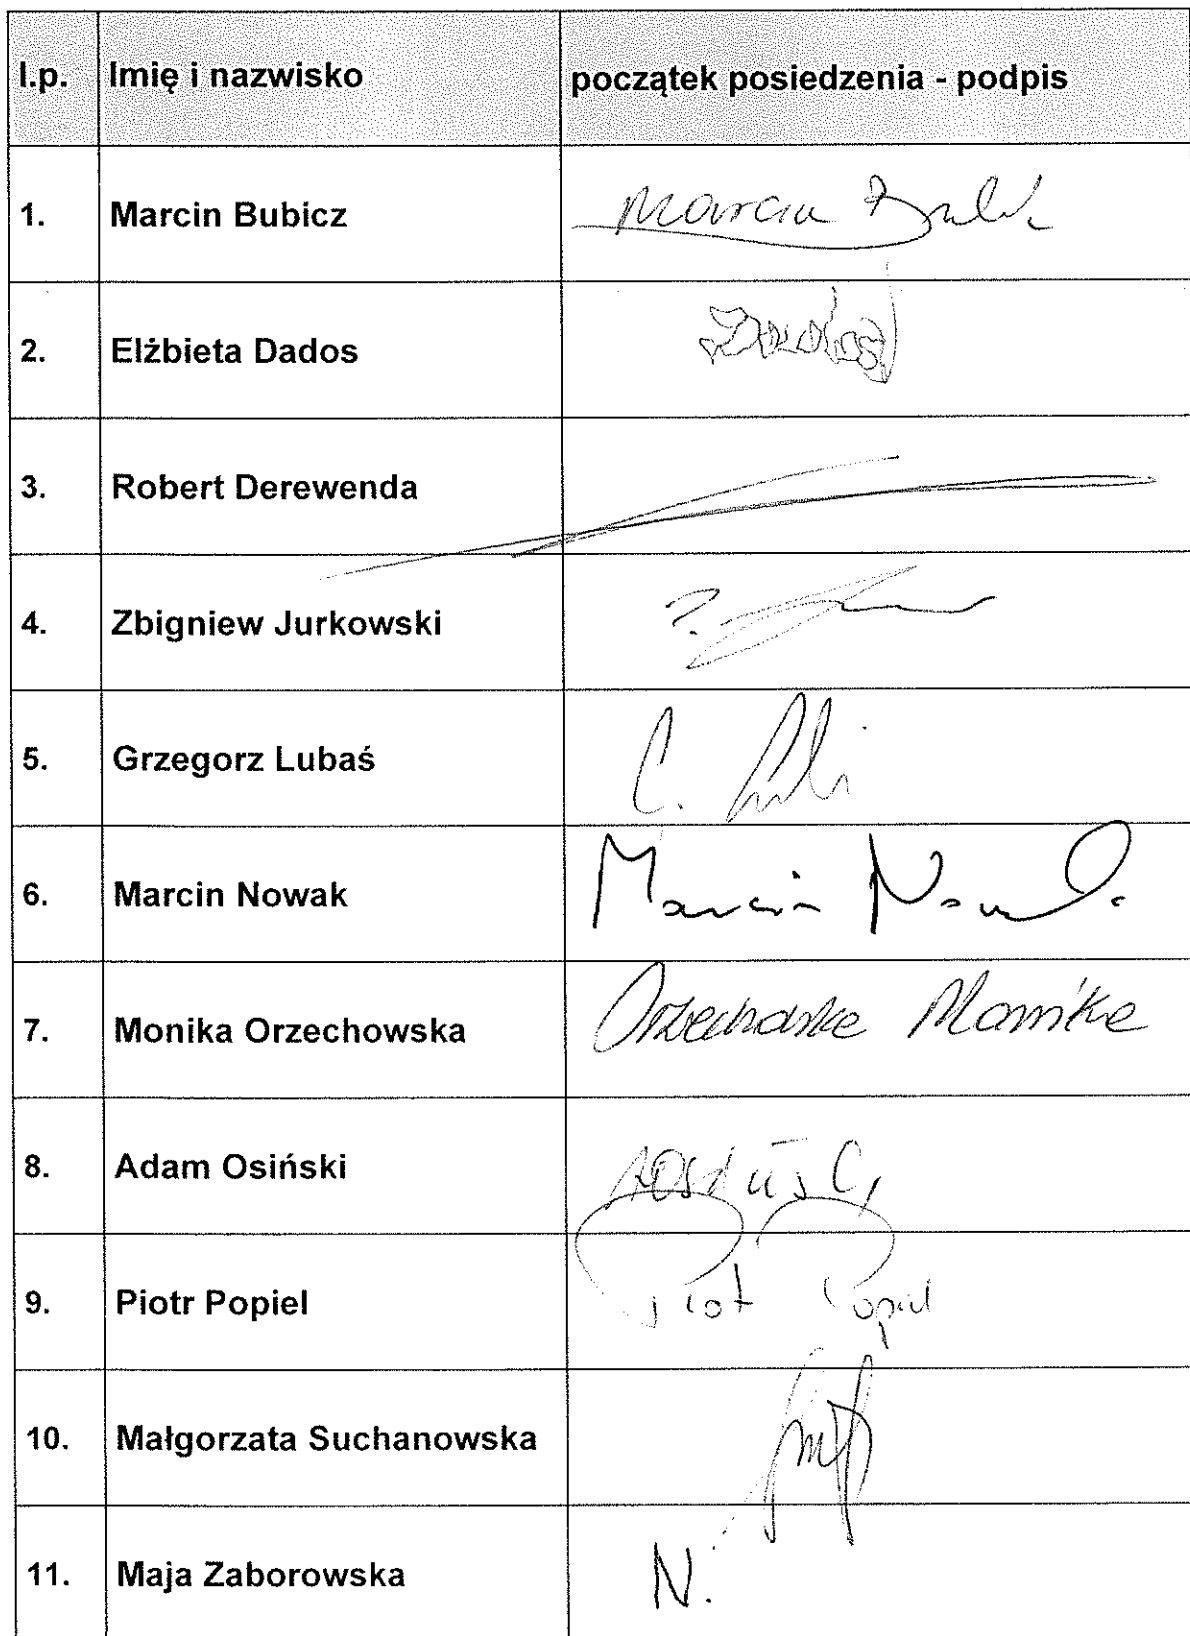 l.p. Imię i nazwisko początek posiedzenia - podpis
1. Marcin Bubicz Marcin
2. Elżbieta Dados
3. Robert Derewenda
4. Zbigniew Jurkowski
5. Grzegorz Lubaś
6. Marcin Nowak Marcin Nowak
7. Monika Orzechowska Orzechowska Monika
8. Adam Osiński
9. Piotr Popiel Piotr Popiel
10. Małgorzata Suchanowska
11. Maja Zaborowska N.